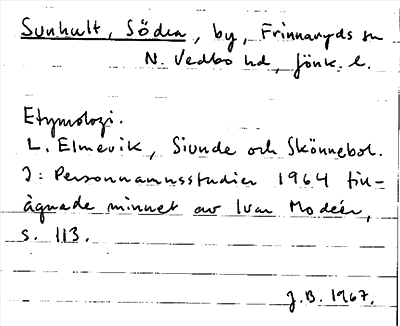 Sunhult, Södra, by, Frinnaryds sn
N. Vedbo hd, Jönk. l.
Etymologi.
L. Elmevik, Siunde och Skönnebol.
I: Personnamnsstudier 1964 till-
ägnade minnet av Ivar Modéer,
s. 113.
J.B. 1967.